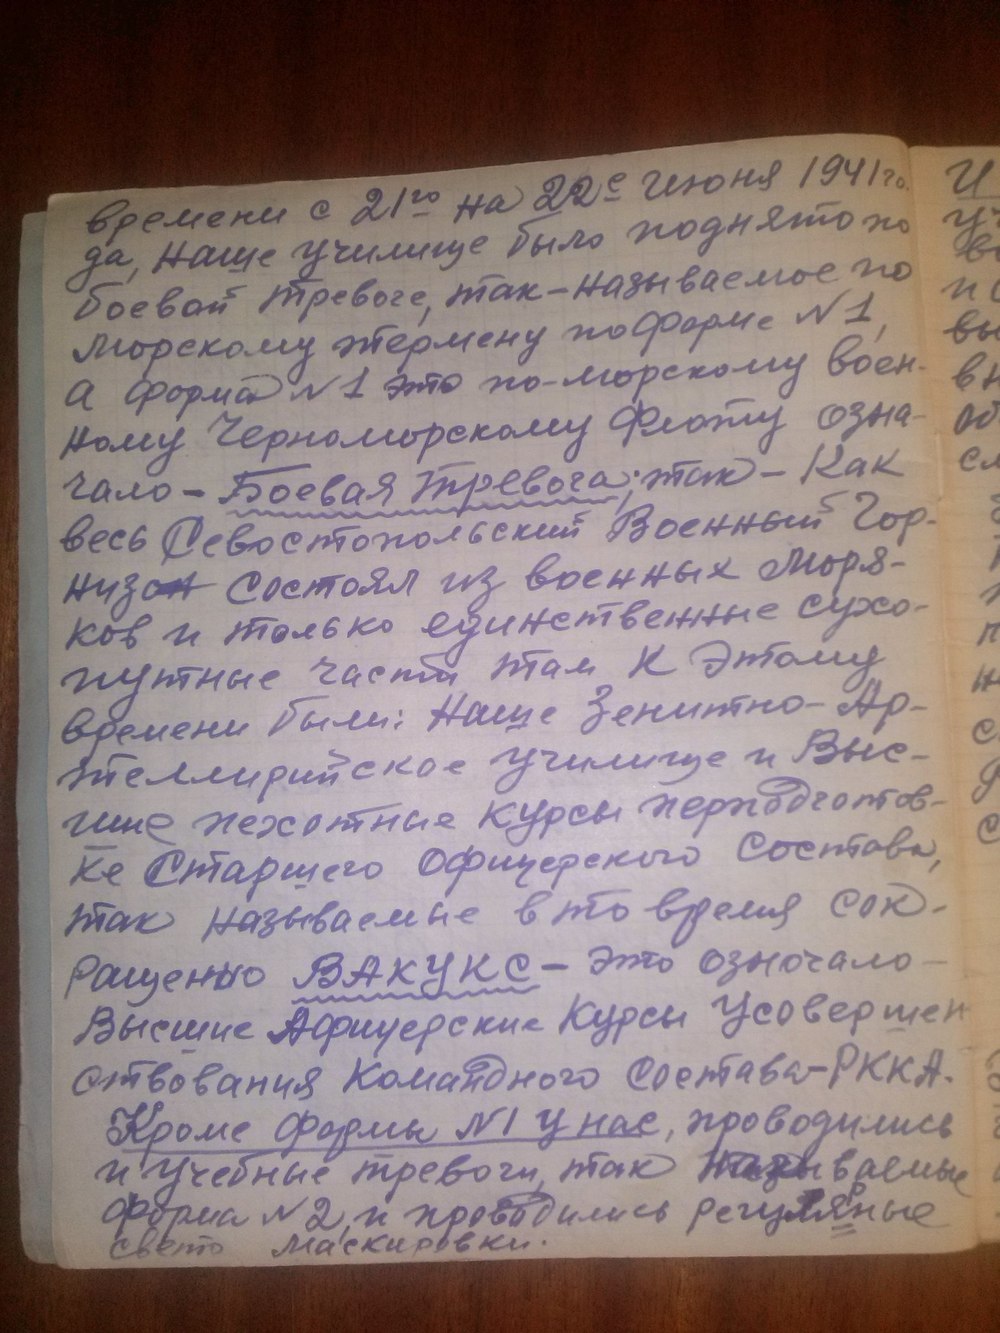 времени с 21го на 22е июня 1941го.
да, наше училище было поднято по
боевой тревоге, так-называемое по
морскому термену по форме №1,
а форма №1 это по-морскому воен-
ному Черноморскому Флоту озна-
чало - Боевая Тревога; так - Как
весь Севостопольский Военный Гор-
низон состоял из военных моря-
ков и только единственные сухо-
путные части там к этому
времени были: Наше Зенитно-Ар-
теллирийское училище и Выс-
шие пехотные курсы переподготов-
ке Старшего офицерского состава,
так называемые в то время сок-
ращенно ВАКУКС - это означало -
Высшие Афицерские Курсы Усовершен
ствования Командного состава-РККА.
Кроме формы №1 у нас, проводились
и учебные тревоги, так называемые
форма №2, и проводились регулярные
свето маскировки.
И
уч
во
и с
вы
вн
об
сл